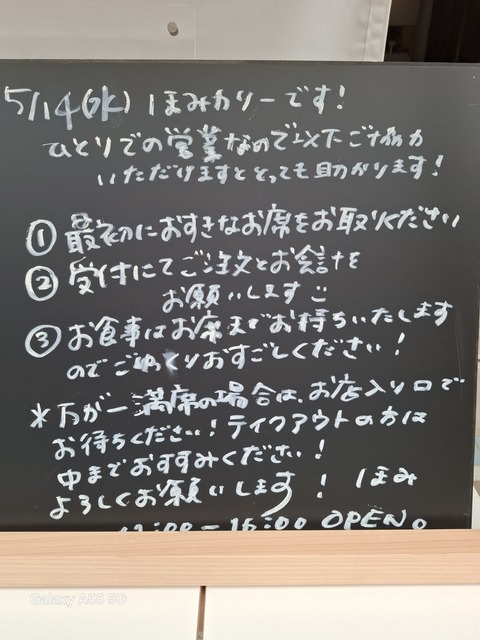 5/14(水) ほみカリーです!
ひとりでの営業なので以下ご協力
いただけますととっても助かります!
① 最初におすきなお席をお取りください
② 受付にてご注文とお会計を
お願いします
③ お食事はお席までお持ちいたします
のでごゆっくりおすごしください!
*万が一満席の場合は、お店入り口で
お待ちください!テイクアウトの方は
中までおすすみください!
よろしくお願いします! ほみ
:00-15:00 OPEN。
Galaxy A55 5G